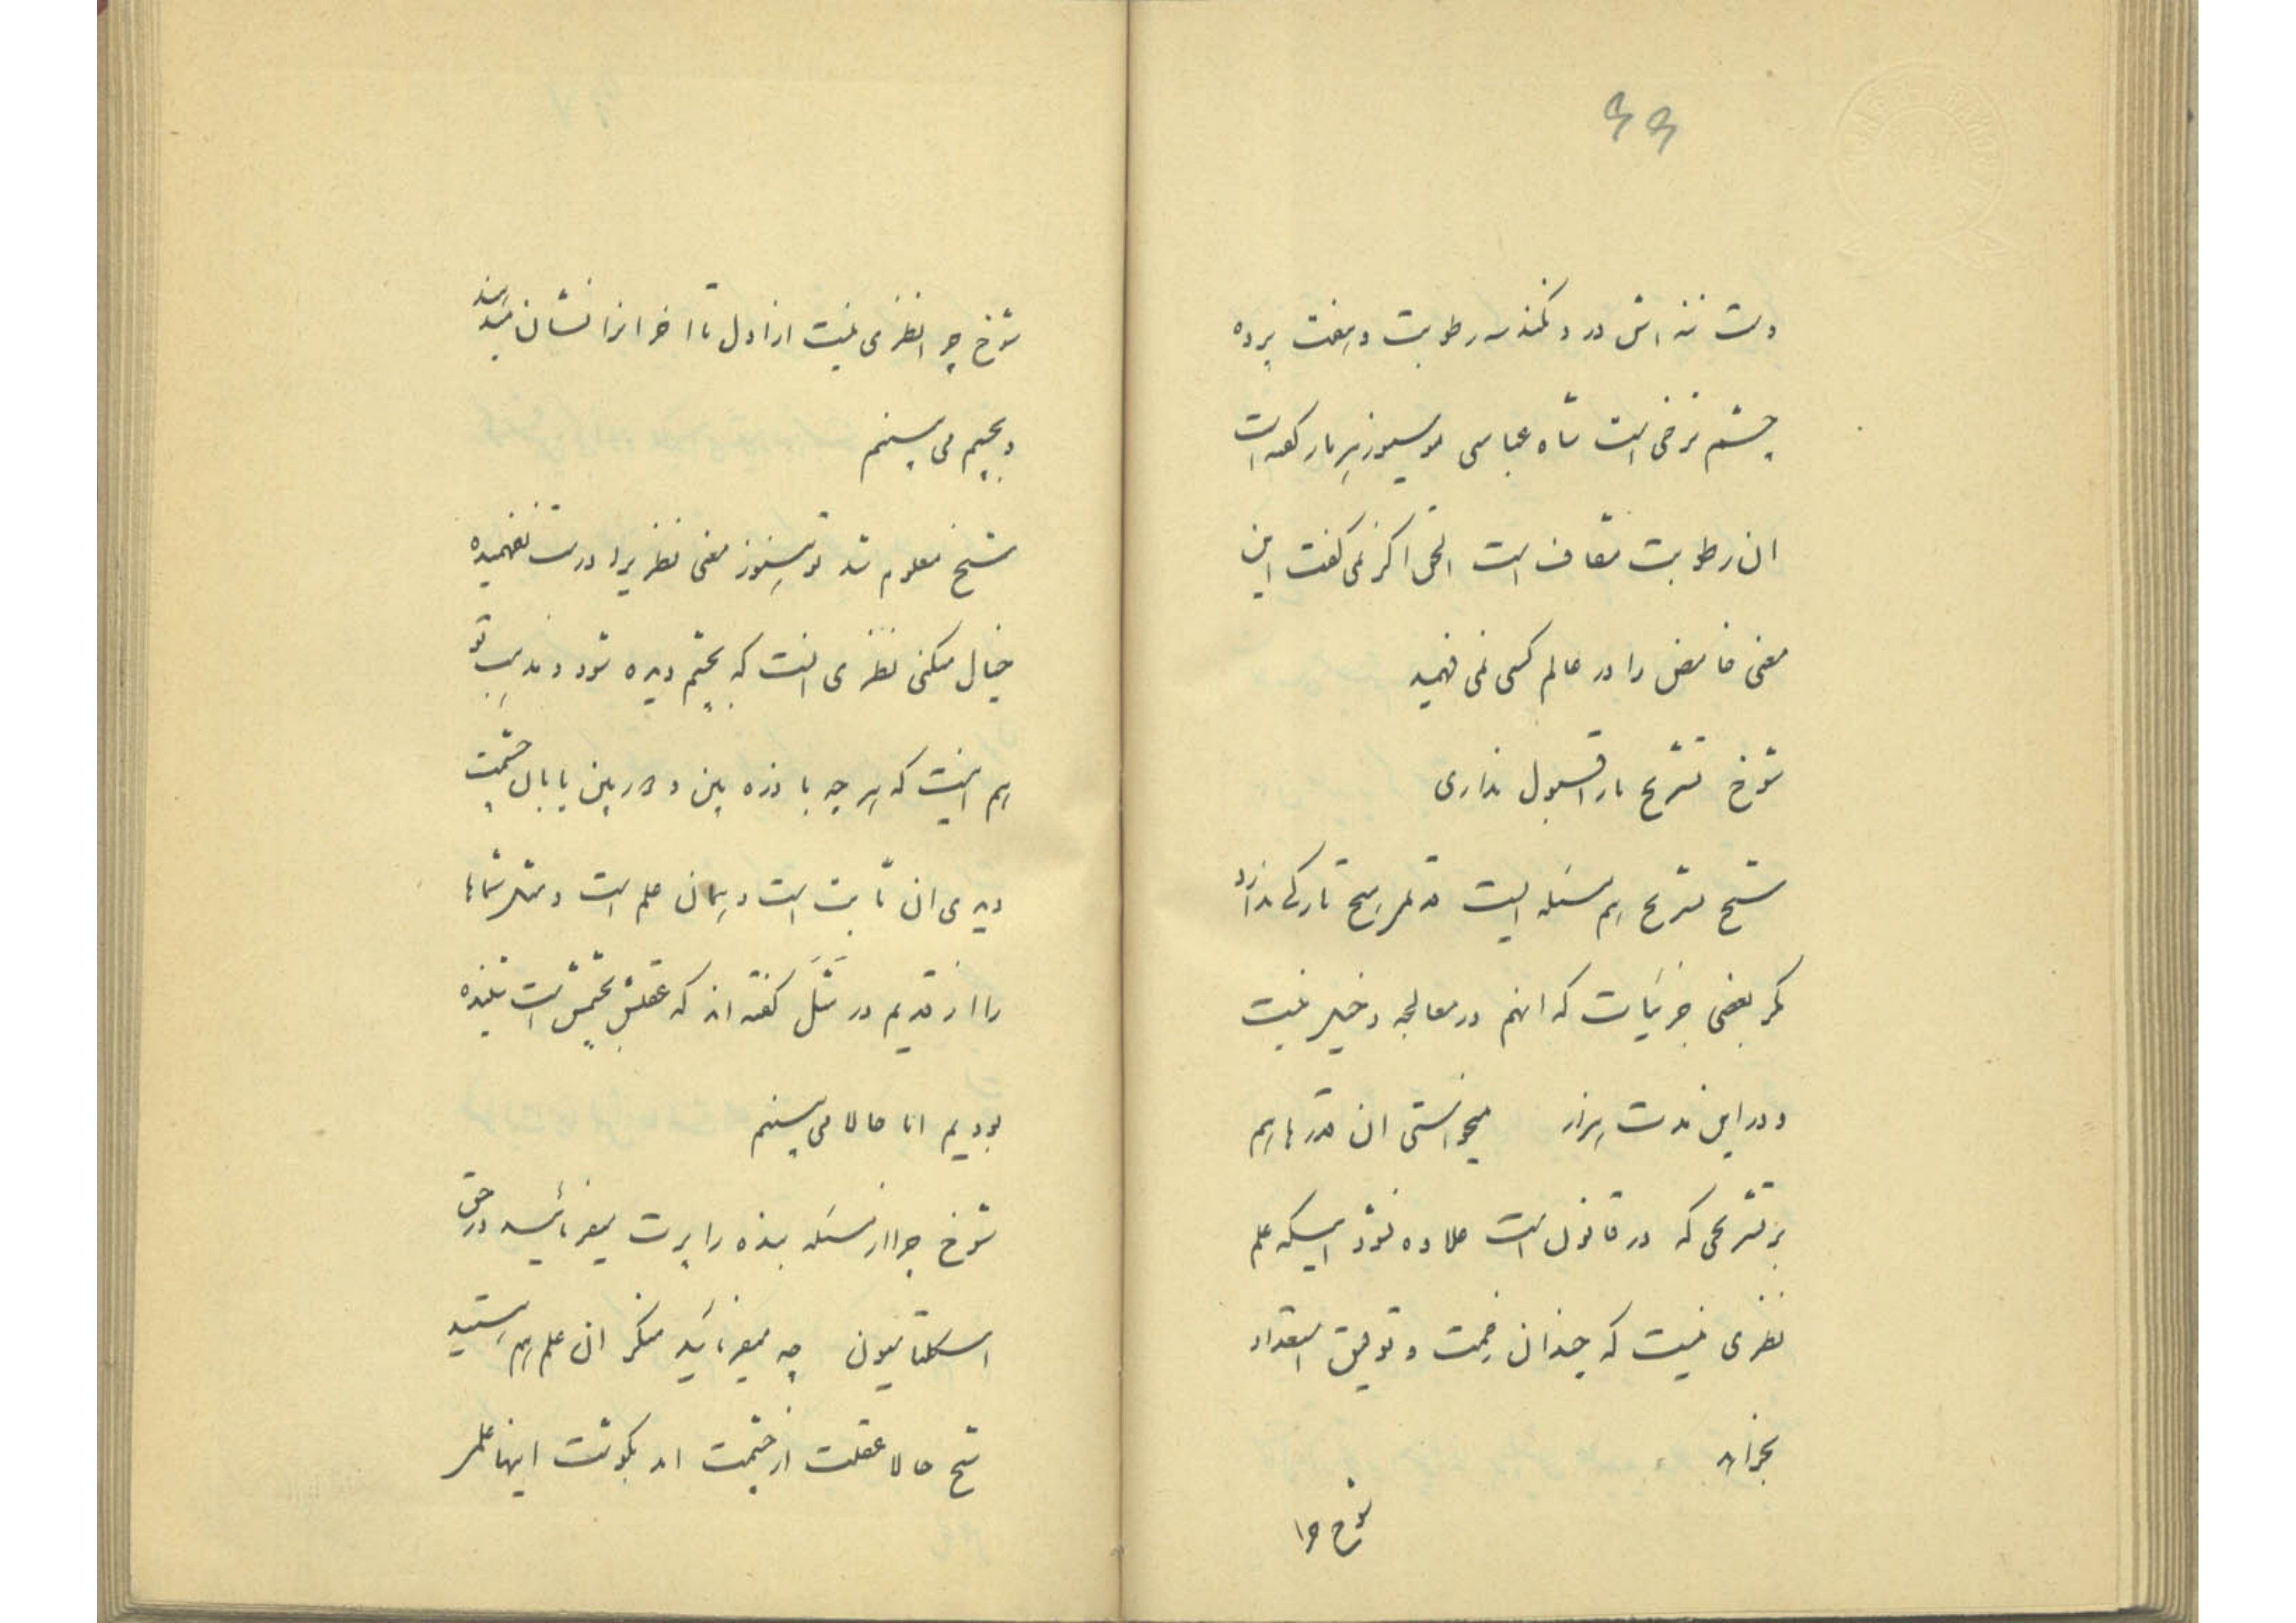 ۴۴
دست ننه اش درد نکند رطوبت و مفت برده
چشم نرخی است شاه عباسی موسیو زیرمار گفته است
ان رطوبت شفاف است الحق اگر نمی گفت این
معنی غامض را در عالم کسی نمی فهمید
شوخ تشریح را قبول نداری
شیخ تشریح هم مسئله ایست قدیمی هیچ تازگی ندارد
مگر بعضی جزئیات که انهم در معالجه دخیل نیست
و در این مدت هزار میخواستی ان قدرها هم
بر تشریحی که در قانون است علاوه نشد اینکه علم
نظری نیست که چندان زحمت و توفیق استعداد
بخواهد
شوخ چرا
شوخ چرا نظری نیست از اول تا اخر انرا نشان میدهند
و بچشم می بینم
شیخ معلوم شد تو هنوز معنی نظری را درست نفهمیده
خیال میکنی نظری انست که بچشم دیده شود و مذهب تو
هم اینست که هر چه با ذره بین و دوربین یا با ان چشمت
دیدی ان ثابت است و همان علم است و مثل شماها
را از قدیم در مَثَل گفته اند که عقلش بچشمش است شنیده
بودیم اما حالا می بینم
شوخ چرا از مسئله بنده را پرت میفرمائید در حق
اسکلتاسیون چه میفرمائید منکر ان علم هم هستید
شیخ حالا عقلت از چشمت امد بگوشت اینها علم